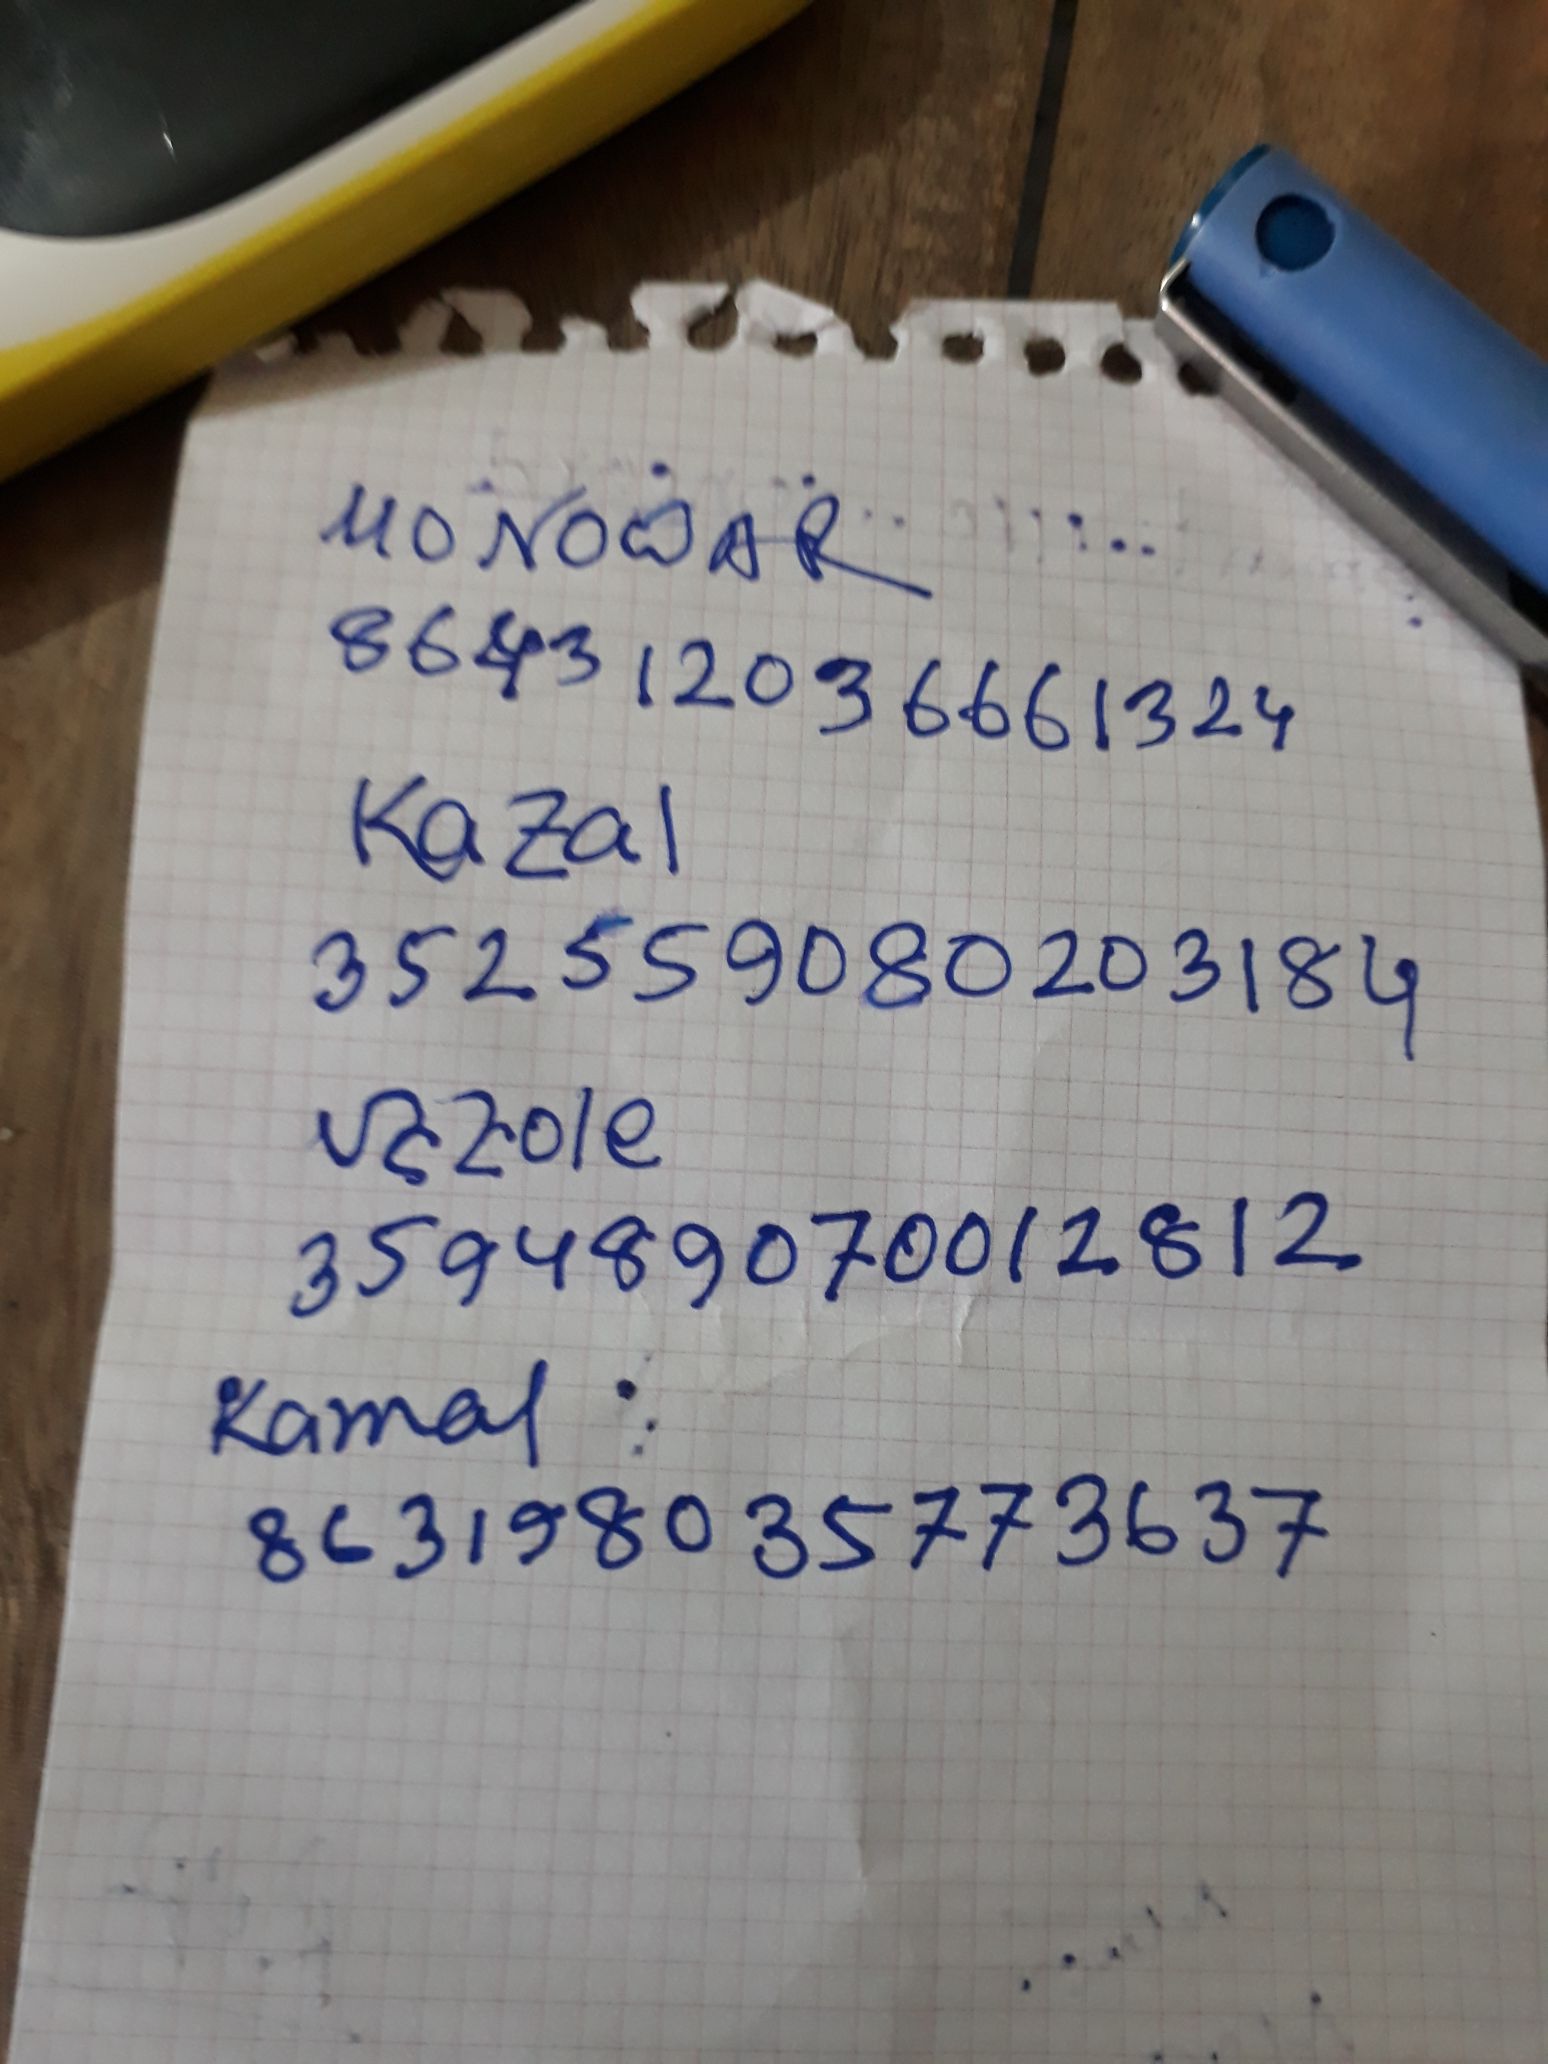 MONOWAR
864312036661324
Kazal
352559080203184
359489070012812
Kamal :
863198035773637